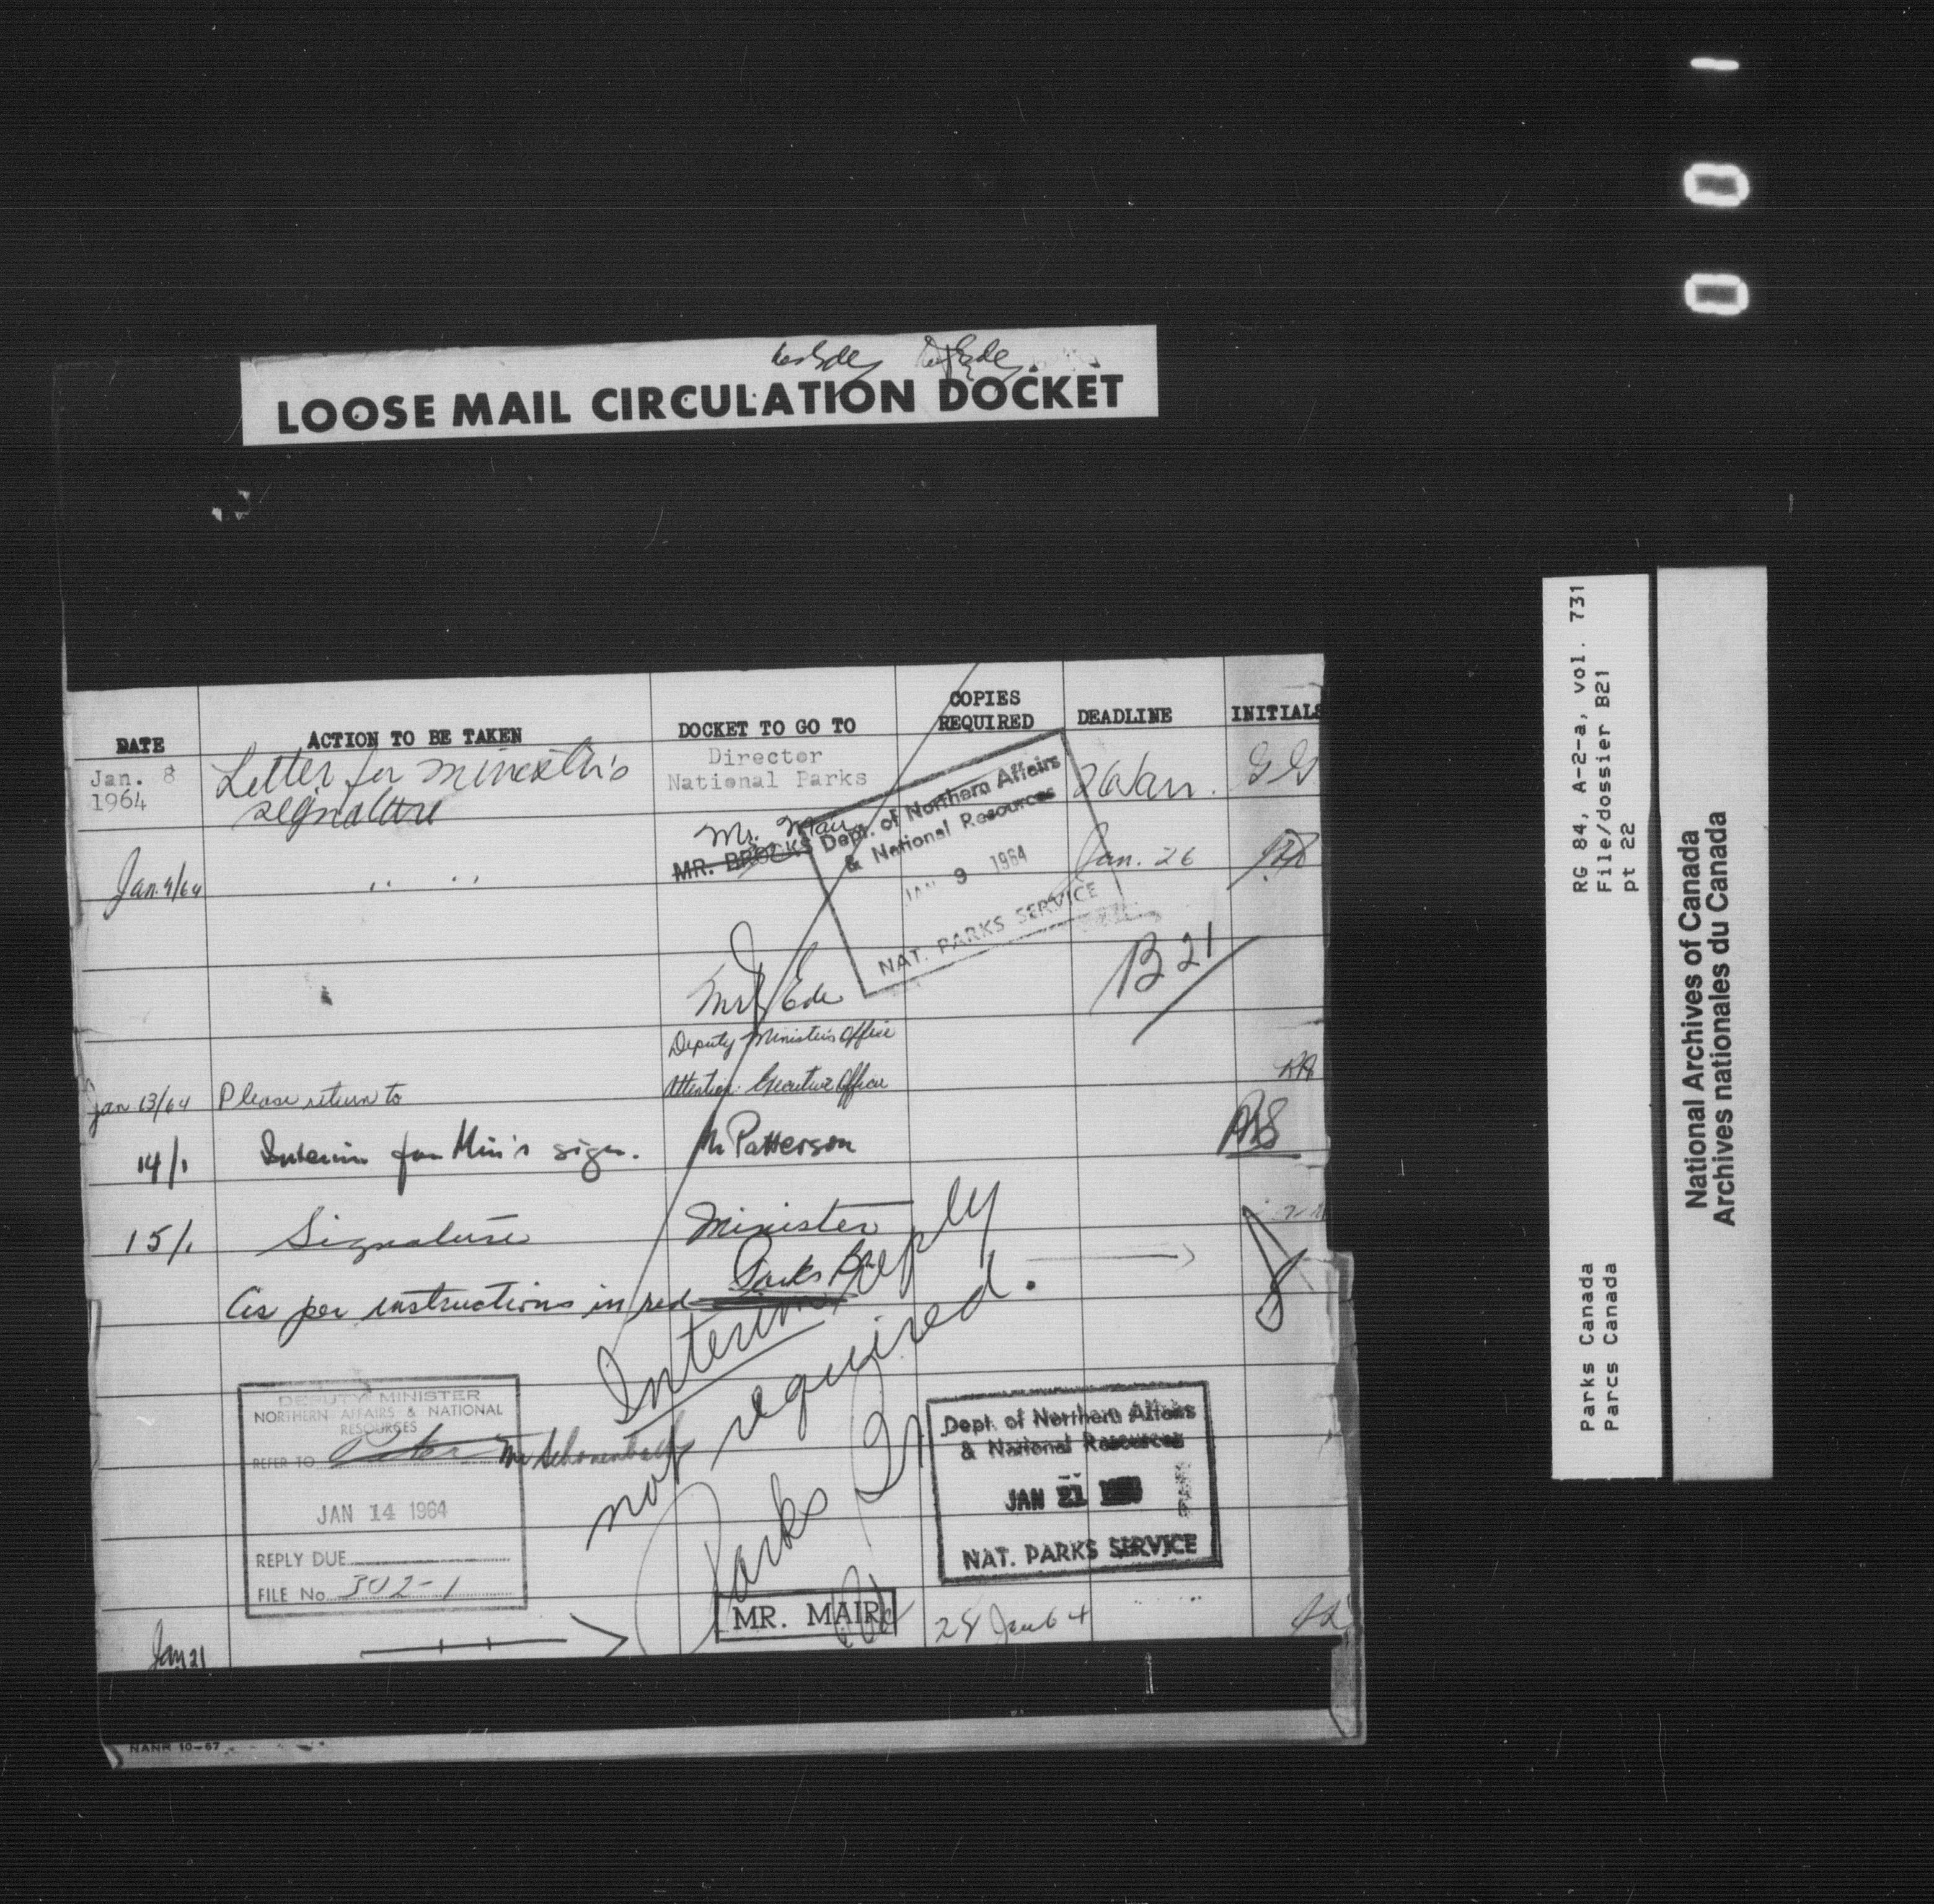 LOOSE MAIL CIRCULATION DOCKET
DATE ACTION TO BE TAKEN DOCKET TO GO TO COPIES REQUIRED DEADLINE INITIALS
Jan. 8 1964 Letter for minister's signature Director National Parks 26 Jan. GG
Mr. Mair
MR. BROCKS
Jan. 9/64 " " Jan. 26
Dept. of Northern Affairs
& National Resources
JAN 9 1964
NAT. PARKS SERVICE
B 21
Mr Ede
Deputy Minister's Office
Jan 13/64 Please return to Attention: Executive Officer
14/1 Interim for Min's sign. Mr Patterson
15/1 Signature Minister
As per instructions in red Parks Br
Interim reply
not required.
Parks Br
DEPUTY MINISTER
NORTHERN AFFAIRS & NATIONAL
RESOURCES
REFER TO
JAN 14 1964
REPLY DUE
FILE No. 302-1
Dept. of Northern Affairs
& National Resources
JAN 21
NAT. PARKS SERVICE
Jan 21 MR. MAIR 28 Jan 64
NANR 10-67
RG 84, A-2-a, vol. 731
File/dossier B21
pt 22
Parks Canada
Parcs Canada
National Archives of Canada
Archives nationales du Canada